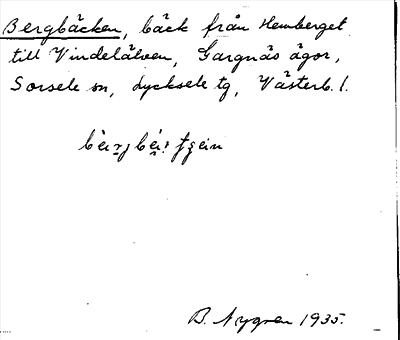 Bergbäcken, bäck från Hemberget
till Vindelälven, Gargnäs ägor,
Sorsele sn, Lycksele tg, Västerb. l.
B. Nygren 1935.